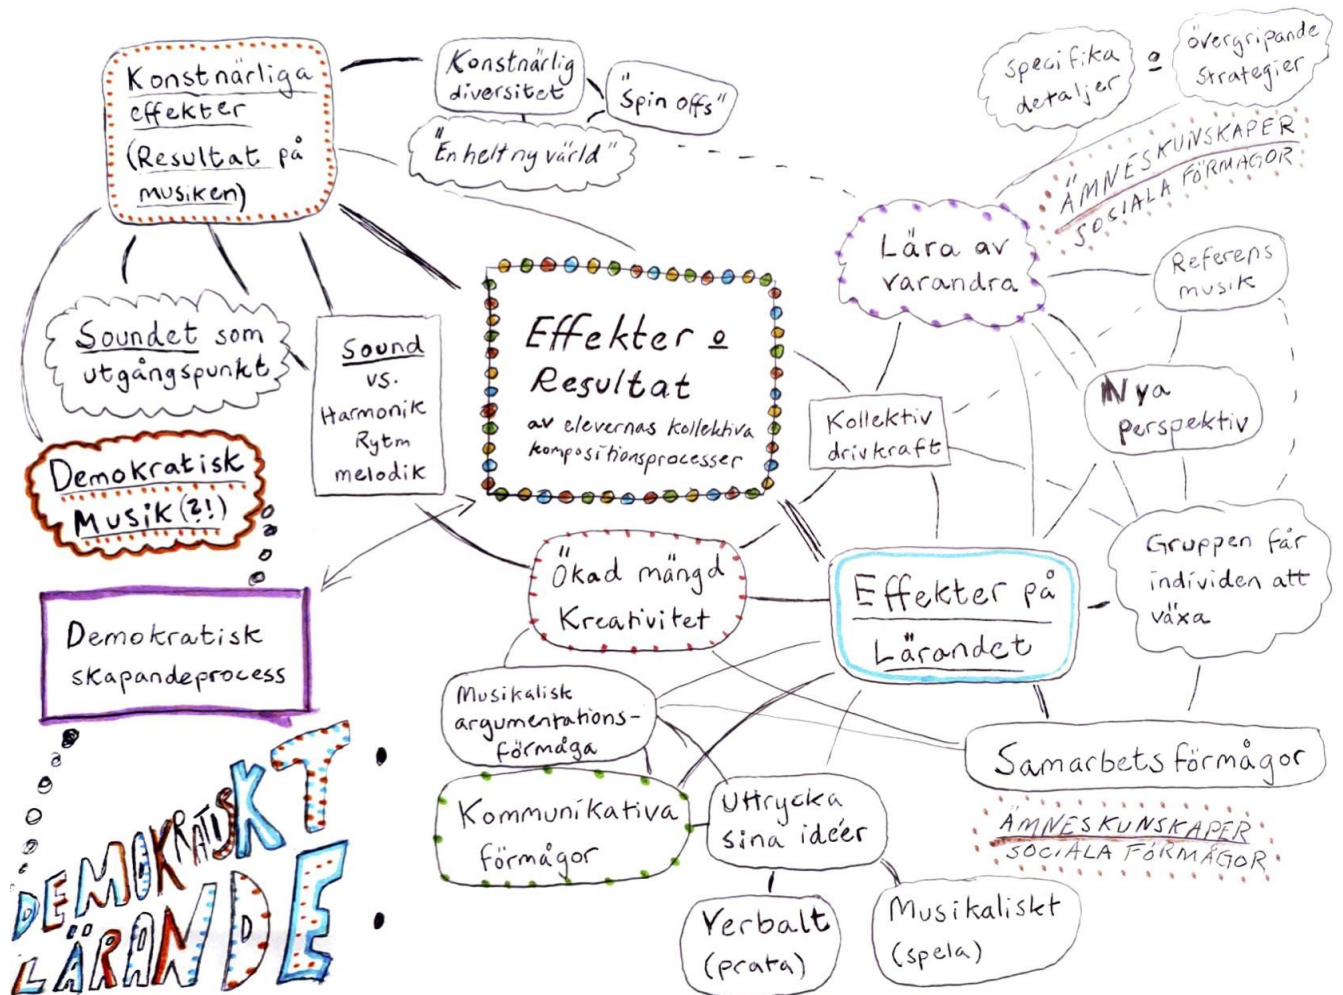 Konstnärliga
effekter
(Resultat på
musiken)
Konstnärlig
diversitet
"Spin offs"
"En helt ny värld"
specifika
detaljer
o
övergripande
strategier
ÄMNESKUNSKAPER
SOCIALA FÖRMÅGOR
Lära av
varandra
Referens
musik
Soundet som
utgångspunkt
Sound
vs.
Harmonik
Rytm
melodik
Effekter o
Resultat
av elevernas kollektiva
kompositionsprocesser
Kollektiv
drivkraft
Nya
perspektiv
Demokratisk
Musik (?!)
Ökad mängd
Kreativitet
Effekter på
Lärandet
Gruppen får
individen att
växa
Demokratisk
skapandeprocess
Musikalisk
argumentations-
förmåga
Samarbetsförmågor
Kommunikativa
förmågor
Uttrycka
sina idéer
ÄMNESKUNSKAPER
SOCIALA FÖRMÅGOR
Verbalt
(prata)
Musikaliskt
(spela)
DEMOKRATISKT
LÄRANDE